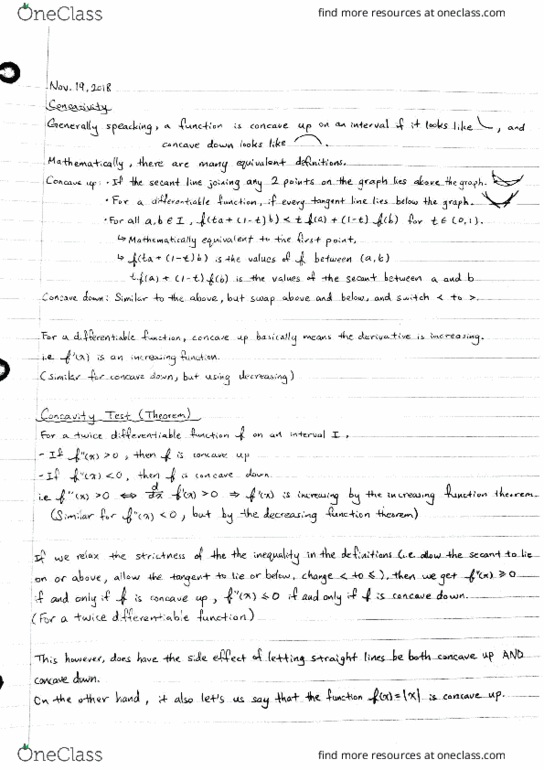 OneClass find more resources at oneclass.com
Nov. 19, 2018
Concavity
Generally speacking, a function is concave up on an interval if it looks like , and
concave down looks like .
Mathematically, there are many equivalent definitions.
Concave up: • If the secant line joining any 2 points on the graph lies above the graph.
• For a differentiable function, if every tangent line lies below the graph.
• For all a,b ∈ I, f(ta + (1-t)b) < t f(a) + (1-t) f(b) for t ∈ (0,1).
↳ Mathematically equivalent to the first point,
↳ f(ta + (1-t)b) is the values of f between (a,b)
tf(a) + (1-t)f(b) is the values of the secant between a and b
Concave down: Similar to the above, but swap above and below, and switch < to >.
For a differentiable function, concave up basically means the derivative is increasing.
i.e f'(x) is an increasing function.
(Similar for concave down, but using decreasing)
Concavity Test (Theorem)
For a twice differentiable function f on an interval I,
- If f''(x) > 0, then f is concave up
- If f''(x) < 0, then f is concave down.
i.e f''(x) > 0 ⟺ d/dx f'(x) > 0 ⇒ f'(x) is increasing by the increasing function theorem.
(Similar for f''(x) < 0, but by the decreasing function theorem)
If we relax the strictness of the the inequality in the definitions (i.e. allow the secant to lie
on or above, allow the tangent to lie or below, change < to ≤), then we get f''(x) ≥ 0
if and only if f is concave up, f''(x) ≤ 0 if and only if f is concave down.
(For a twice differentiable function.)
This however, does have the side effect of letting straight lines be both concave up AND
concave down.
On the other hand, it also let's us say that the function f(x) = |x| is concave up.
OneClass find more resources at oneclass.com